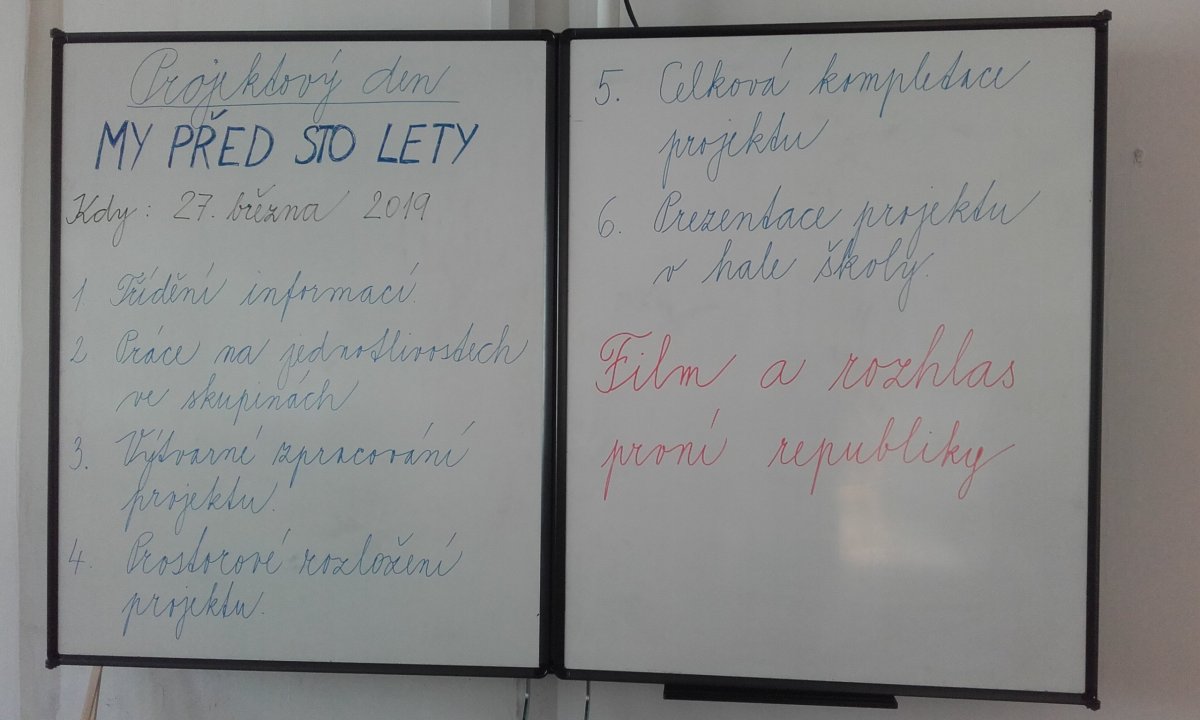 Projektový den
MY PŘED STO LETY
Kdy: 27. března 2019
1. Třídění informací.
2. Práce na jednotlivostech
ve skupinách
3. Výtvarné zpracování
projektu.
4. Prostorové rozložení
projektu.
5. Celková kompletace
projektu
6. Prezentace projektu
v hale školy.
Film a rozhlas
první republiky